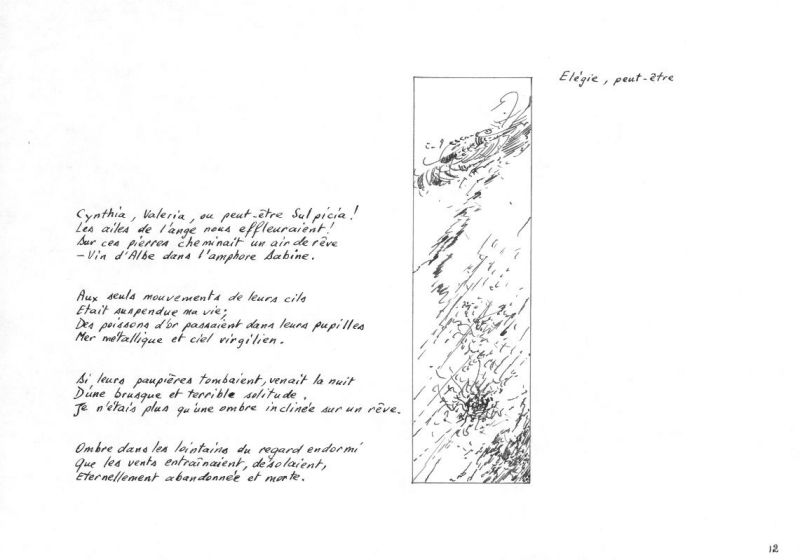 Elégie, peut-être
Cynthia, Valeria, ou peut-être Sulpicia!
Les ailes de l'ange nous effleuraient!
Sur ces pierres cheminait un air de rêve
- Vin d'Albe dans l'amphore Sabine.
Aux seuls mouvements de leurs cils
Etait suspendue ma vie;
Des poissons d'or passaient dans leurs pupilles
Mer métallique et ciel virgilien.
Si leurs paupières tombaient, venait la nuit
D'une brusque et terrible solitude.
Je n'étais plus qu'une ombre inclinée sur un rêve.
Ombre dans les lointains du regard endormi
Que les vents entraînaient, désolaient,
Eternellement abandonnée et morte.
12